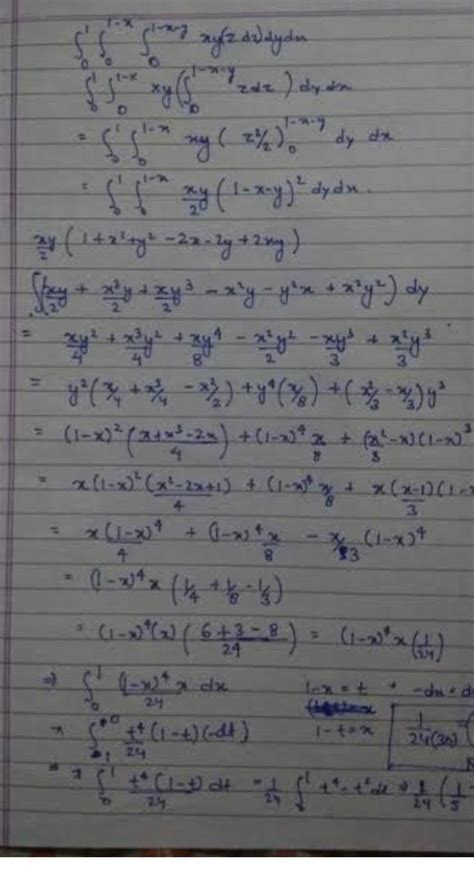 ∫₀¹ ∫₀^{1-x} ∫₀^{1-x-y} xy(z dz) dy dx
∫₀¹ ∫₀^{1-x} xy (∫₀^{1-x-y} z dz) dy dx
= ∫₀¹ ∫₀^{1-x} xy (z²/2)₀^{1-x-y} dy dx
= ∫₀¹ ∫₀^{1-x} xy/2 (1-x-y)² dy dx.
xy/2 (1+x²+y²-2x-2y+2xy)
∫(xy/2 + x³y/2 + xy³/2 - x²y - y²x + x²y²) dy
= xy²/4 + x³y²/4 + xy⁴/8 - x²y²/2 - xy³/3 + x²y³/3
= y²(x/4 + x³/4 - x²/2) + y⁴(x/8) + (x²/3 - x/3)y³
= (1-x)²(x+x³-2x/4) + (1-x)⁴ x/8 + (x²-x/3)(1-x)³
= x(1-x)²(x²-2x+1)/4 + (1-x)⁴ x/8 + x(x-1)/3 (1-x
= x(1-x)⁴/4 + (1-x)⁴x/8 - x/3 (1-x)⁴
= (1-x)⁴x (1/4 + 1/8 - 1/3)
= (1-x)⁴(x) (6+3-8/24) = (1-x)⁴x(1/24)
⇒ ∫₀¹ (1-x)⁴x/24 dx 1-x=t -dx=d
∫₁⁰ t⁴/24 (1-t)(-dt) 1-t=x 1/24(30)
∫₀¹ t⁴(1-t)dt/24 = 1/24 ∫₀¹ t⁴-t⁵dt ⇒ 1/24 (1/5 -